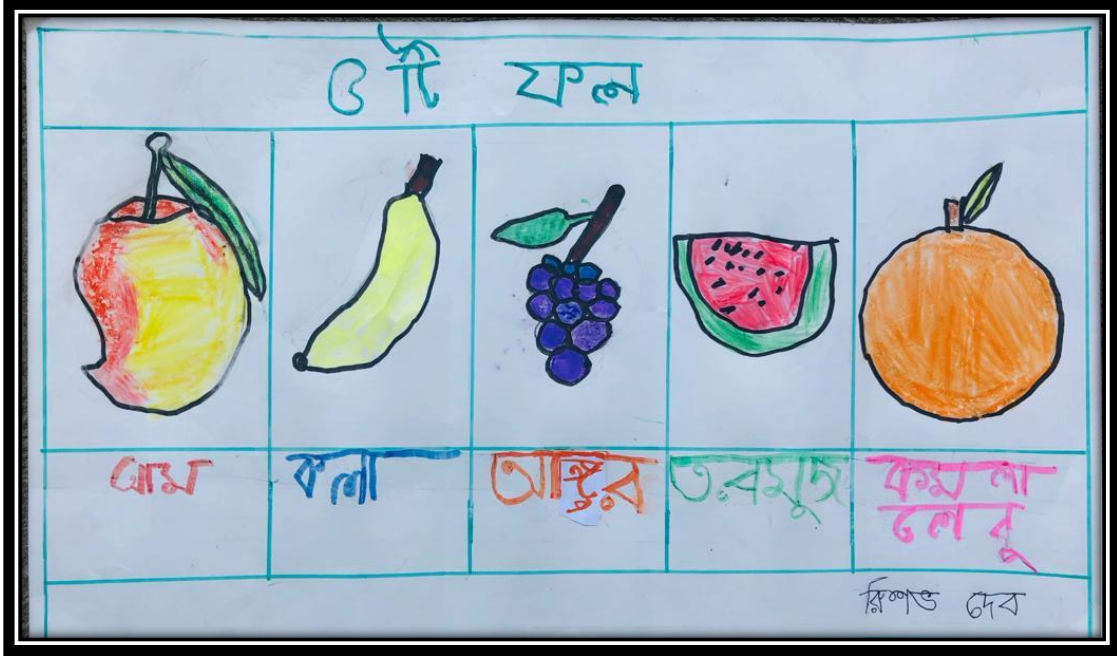 ৫ টি ফল
আম
কলা
আঙ্গুর
তরমুজ
কমলা
লেবু
রিশভ দেব